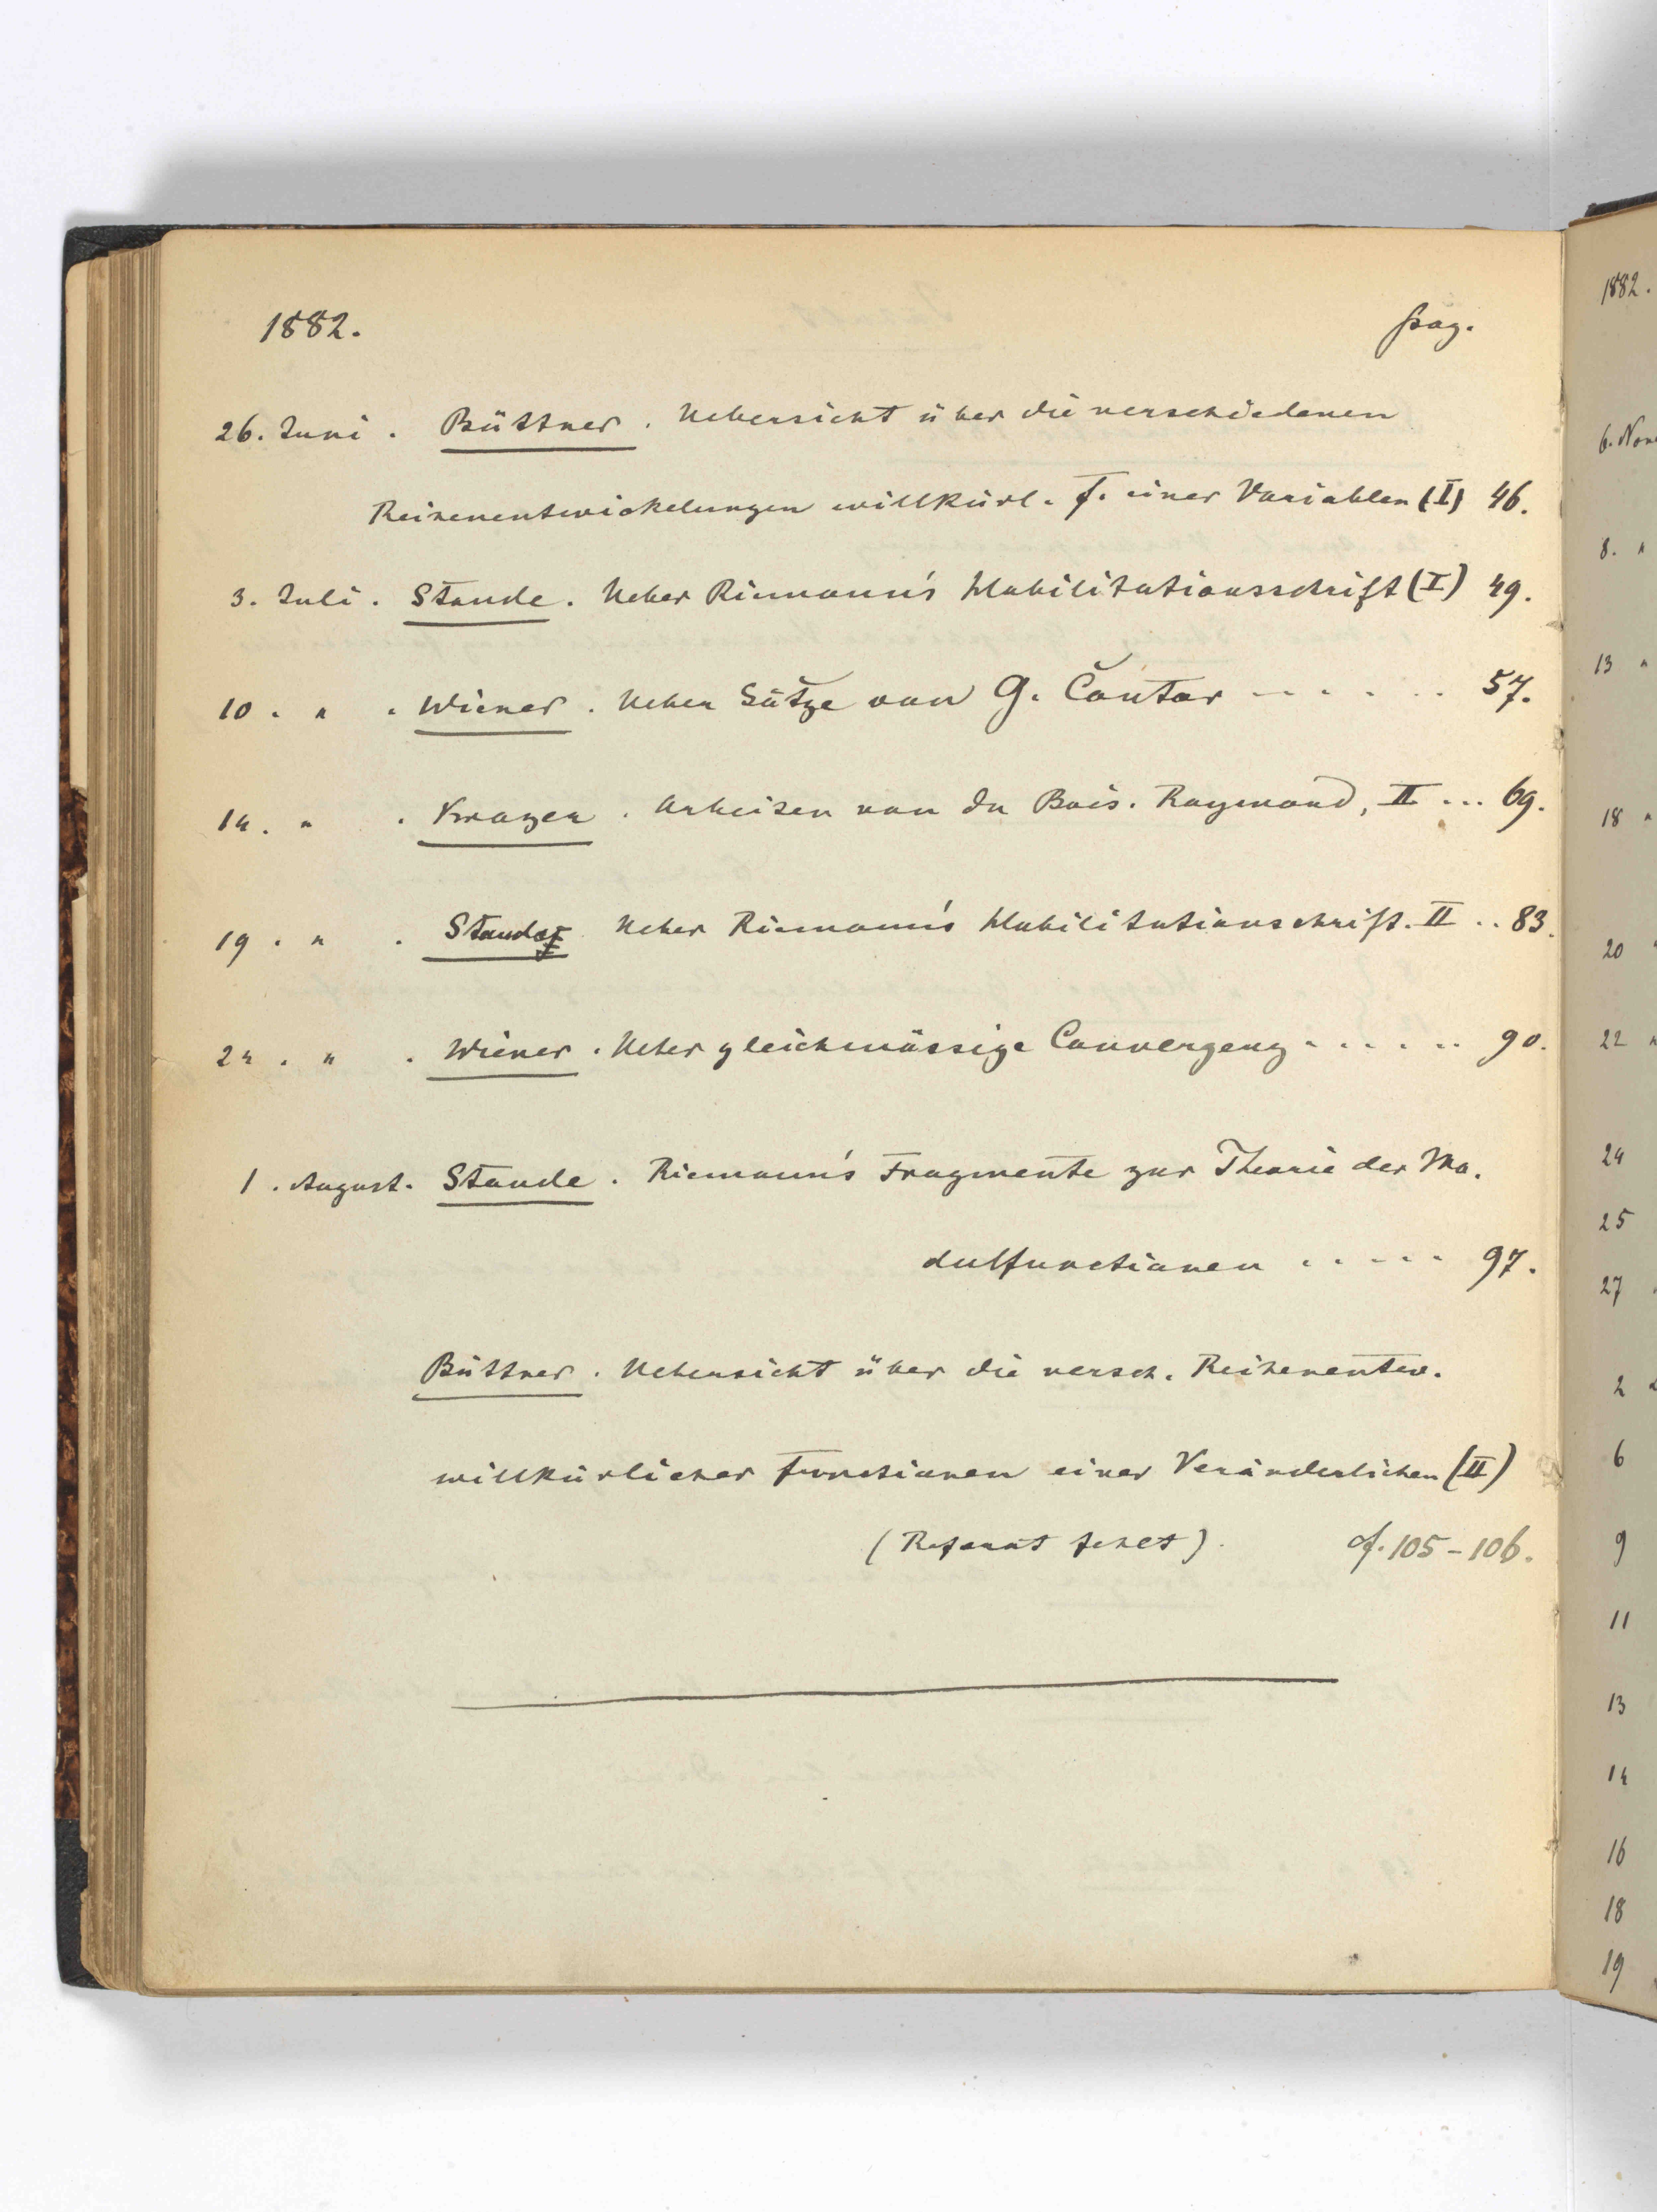 1882. pag.
26. Juni. Büttner. Uebersicht über die verschiedenen
Reihenentwickelungen willkürl. F. einer Variablen (I) 46.
3. Juli. Staude. Ueber Riemann's Habilitationsschrift (I) 49.
10. " . Wiener. Ueber Sätze von G. Cantor - - . . . . 57.
14. " . Krazer. Arbeiten von Du Bois-Raymond, II ... 69.
19. " . Staude. Ueber Riemann's Habilitationschrift. II .. 83.
24. " . Wiener. Ueber gleichmässige Convergenz . . . . .. 90.
1. August. Staude. Riemann's Fragmente zur Theorie der Mo-
dulfunctionen . . - - . 97.
Büttner. Uebersicht über die versch. Reihenentw.
willkürlicher Functionen einer Veränderlichen (II)
(Referat fehlt). cf. 105-106.
1882.
6. Nov
8. "
13 "
18 "
20
22 "
24
25
27
2
6
9
11
13
14
16
18
19